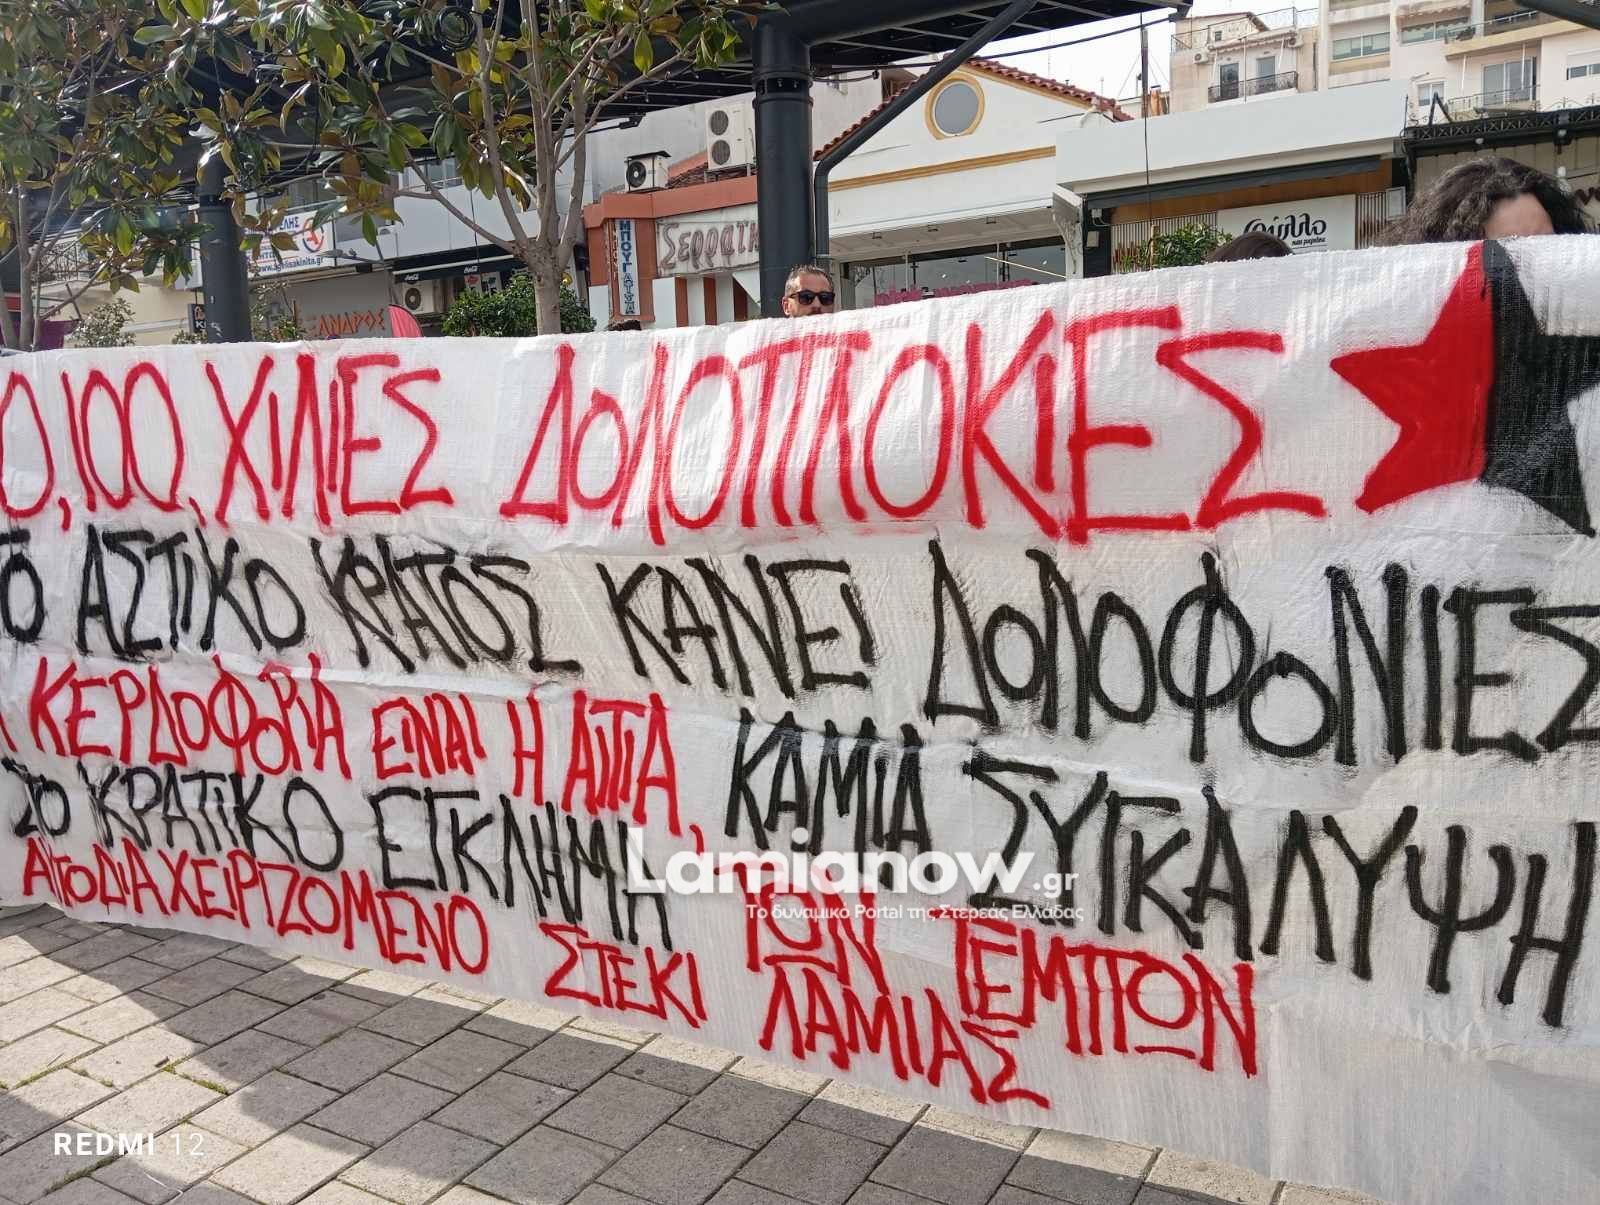 0, 100, ΧΙΛΙΕΣ ΔΟΛΟΠΛΟΚΙΕΣ
ΤΟ ΑΣΤΙΚΟ ΚΡΑΤΟΣ ΚΑΝΕΙ ΔΟΛΟΦΟΝΙΕΣ
Η ΚΕΡΔΟΦΟΡΙΑ ΕΙΝΑΙ Η ΑΙΤΙΑ, ΚΑΜΙΑ ΣΥΓΚΑΛΥΨΗ
ΣΤΟ ΚΡΑΤΙΚΟ ΕΓΚΛΗΜΑ ΤΩΝ ΤΕΜΠΩΝ
ΑΥΤΟΔΙΑΧΕΙΡΙΖΟΜΕΝΟ ΣΤΕΚΙ ΛΑΜΙΑΣ
Lamianow.gr
Το δυναμικό Portal της Στερεάς Ελλάδας
REDMI 12
ΜΠΟΥΓΑΤΣΑ
φύλλο